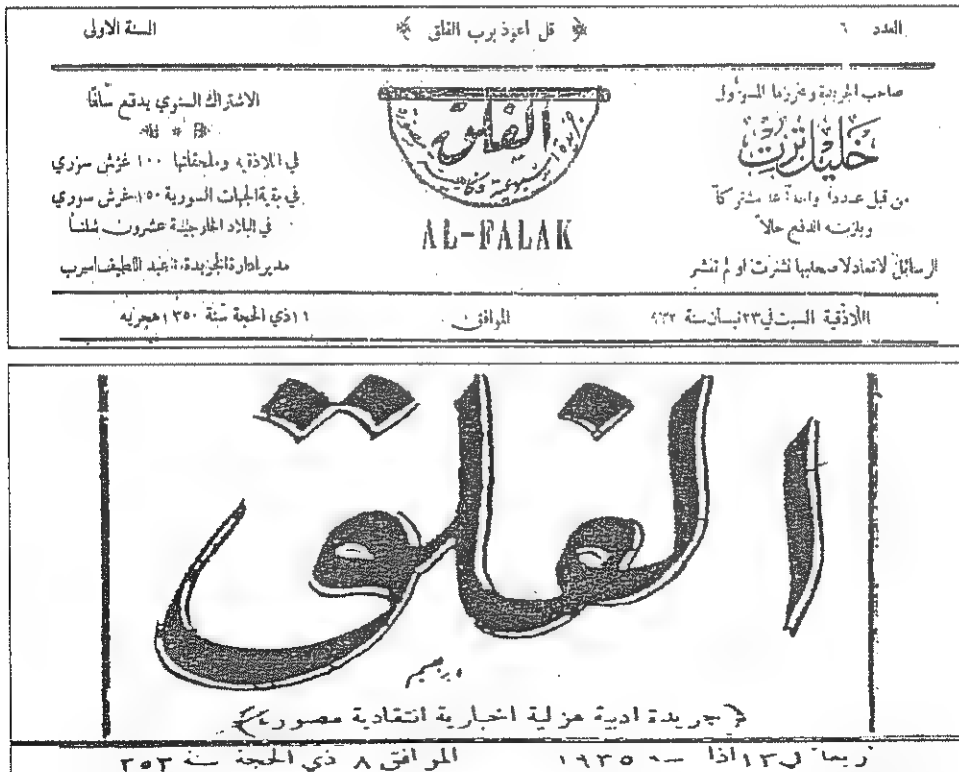 العدد ٦
﴿ قل اعوذ برب الفلق ﴾
السنة الاولى
صاحب الجريدة ومحررها المسؤول
خليل تزت
من قبل عدداً واحداً عد مشتركاً
ويلزمه الدفع حالاً
الرسائل لاتعاد لاصحابها نشرت او لم تنشر
الفلق
AL-FALAK
الاشتراك السنوي يدفع سلفاً
في اللاذقية وملحقاتها ١٠٠ غرش سوري
في بقية الجهات السورية ١٥٠ غرش سوري
في البلاد الخارجية عشرون شلناً
مدير ادارة الجريدة: عبد اللطيف اسرب
اللاذقية السبت في ٢٣ نيسان سنة ٩٣٢
الموافق
ذي الحجة سنة ١٣٥٠ هجرية
الفلق
﴿جريدة ادبية هزلية اخبارية انتقادية مصورة﴾
في ١٣ اذا ١٩٣٥
الموافق ٨ ذي الحجة سنة ٣٥٣